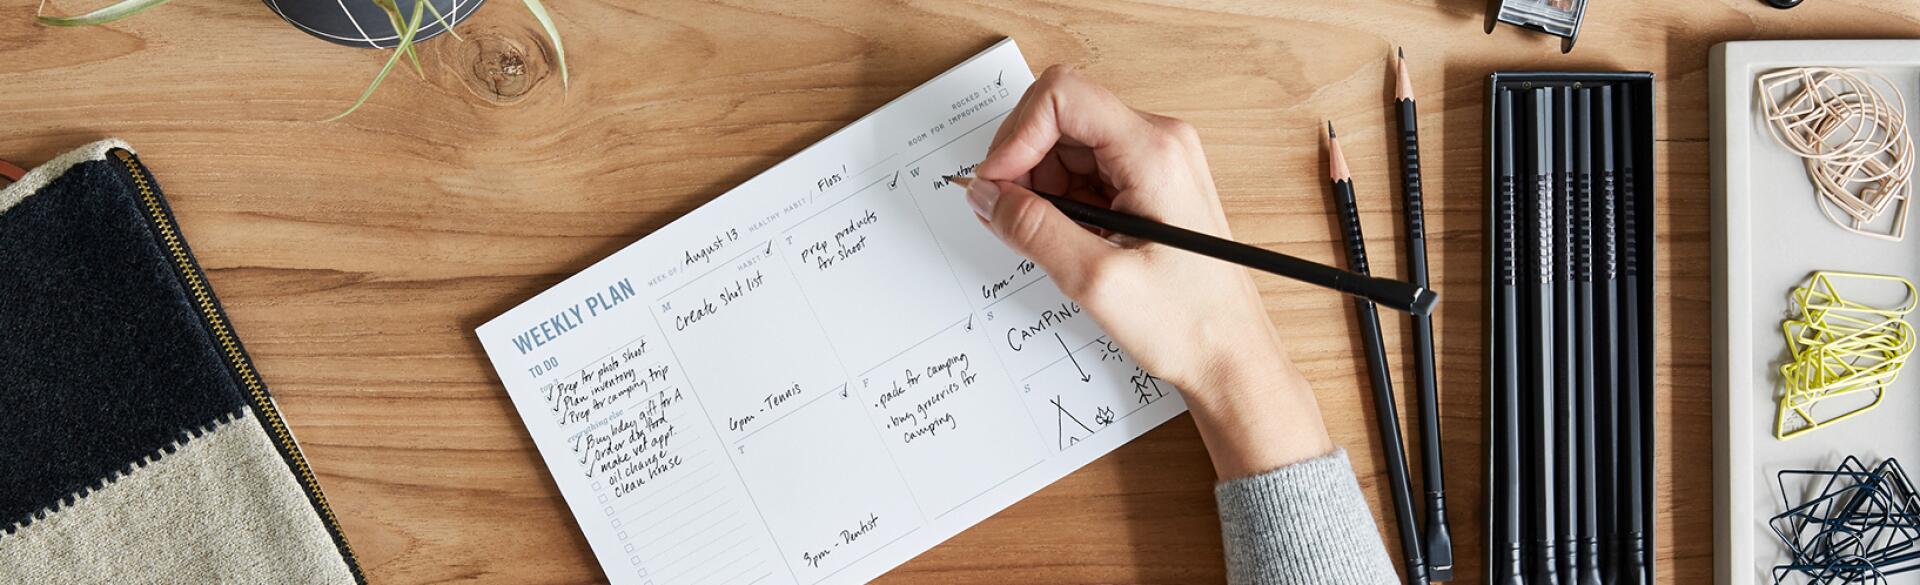 WEEKLY PLAN
WEEK OF / August 13 HEALTHY HABIT / Floss!
ROCKED IT
ROOM FOR IMPROVEMENT
TO DO
top 3
Prep for photo shoot
Plan inventory
Prep for camping trip
everything else
Buy bday gift for A
Order dog food
make vet appt.
oil change
Clean house
M HABIT
Create shot list
6pm - Tennis
T
prep products
for shoot
W
6pm -
T
3pm - Dentist
F
• pack for camping
• buy groceries for
camping
S
CAMPING
S